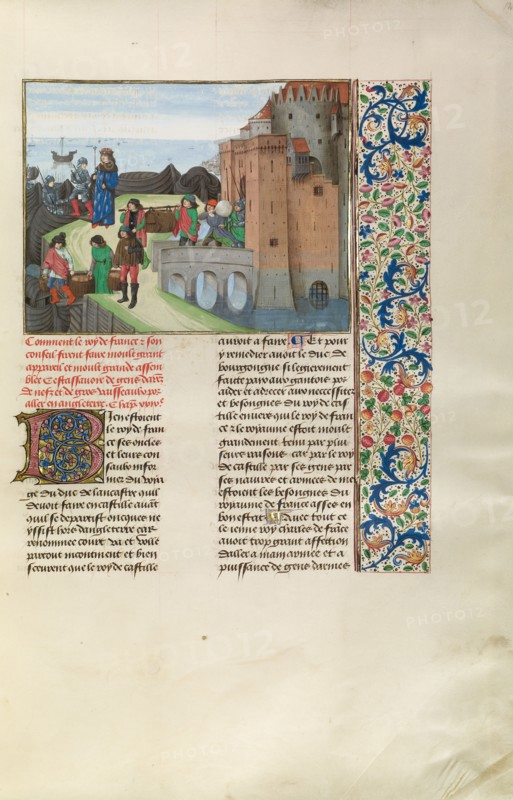 Comment le roy de france et son
conseil firent faire moult grant
appareil et moult grande assem
blee
de nefz et de gros vaisseaulx po
aller en angleterre
Bien estoient
le roy de fran
ce ses oncles
et leurs con
saulx infor
mez du voia
ge du duc de lancastre quil
devoit faire en castille avant
quil se departist oncques ne
yssist hors dangleterre car
renommee court va et volle
partout incontinent et bien
sceurent que le roy de castille
avoit a faire ¶ Et pour
y remedier avoit le duc de
bourgongne si legierement
faitte paix aux gantois po
aidier et adrecer aux necessitez
et besongnes du roy de cas
tille envers qui le roy de fran
ce et le royaume estoit moult
grandement tenu par plui
seurs raisons car par le roy
de castille par ses gens par
ses navires et armees de mer
estoient les besongnes du
royaume de france assez en
bon estat ¶ Avec tout ce
le ieune roy charles de france
avoit trop grant affection
daller a main armee et a
puissance de gens darmes
PHOTO12
PHOTO12
PHOTO12
PHOTO12